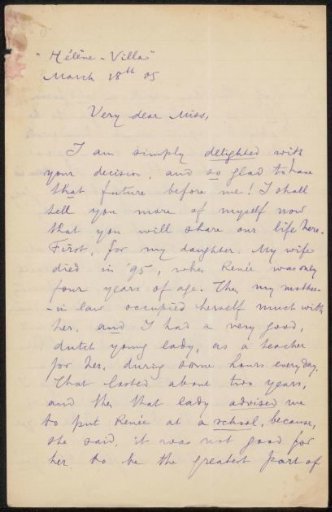 "Hélène-Villa"
March 18th 05
Very dear Miss,
I am simply delighted with
your decision, and so glad to have
that future before me! I shall
tell you more of myself now
that you will share our life here.
First, for my daughter. My wife
died in '95, when Renée was only
four years of age. Then my mother-
-in law occupied herself much with
her, and I had a very good,
dutch young lady, as a teacher
for her, during some hours every day.
That lasted about two years,
and the that lady advised me
to put Renée at a school, because,
she said, it was not good for
her to be the greatest part of